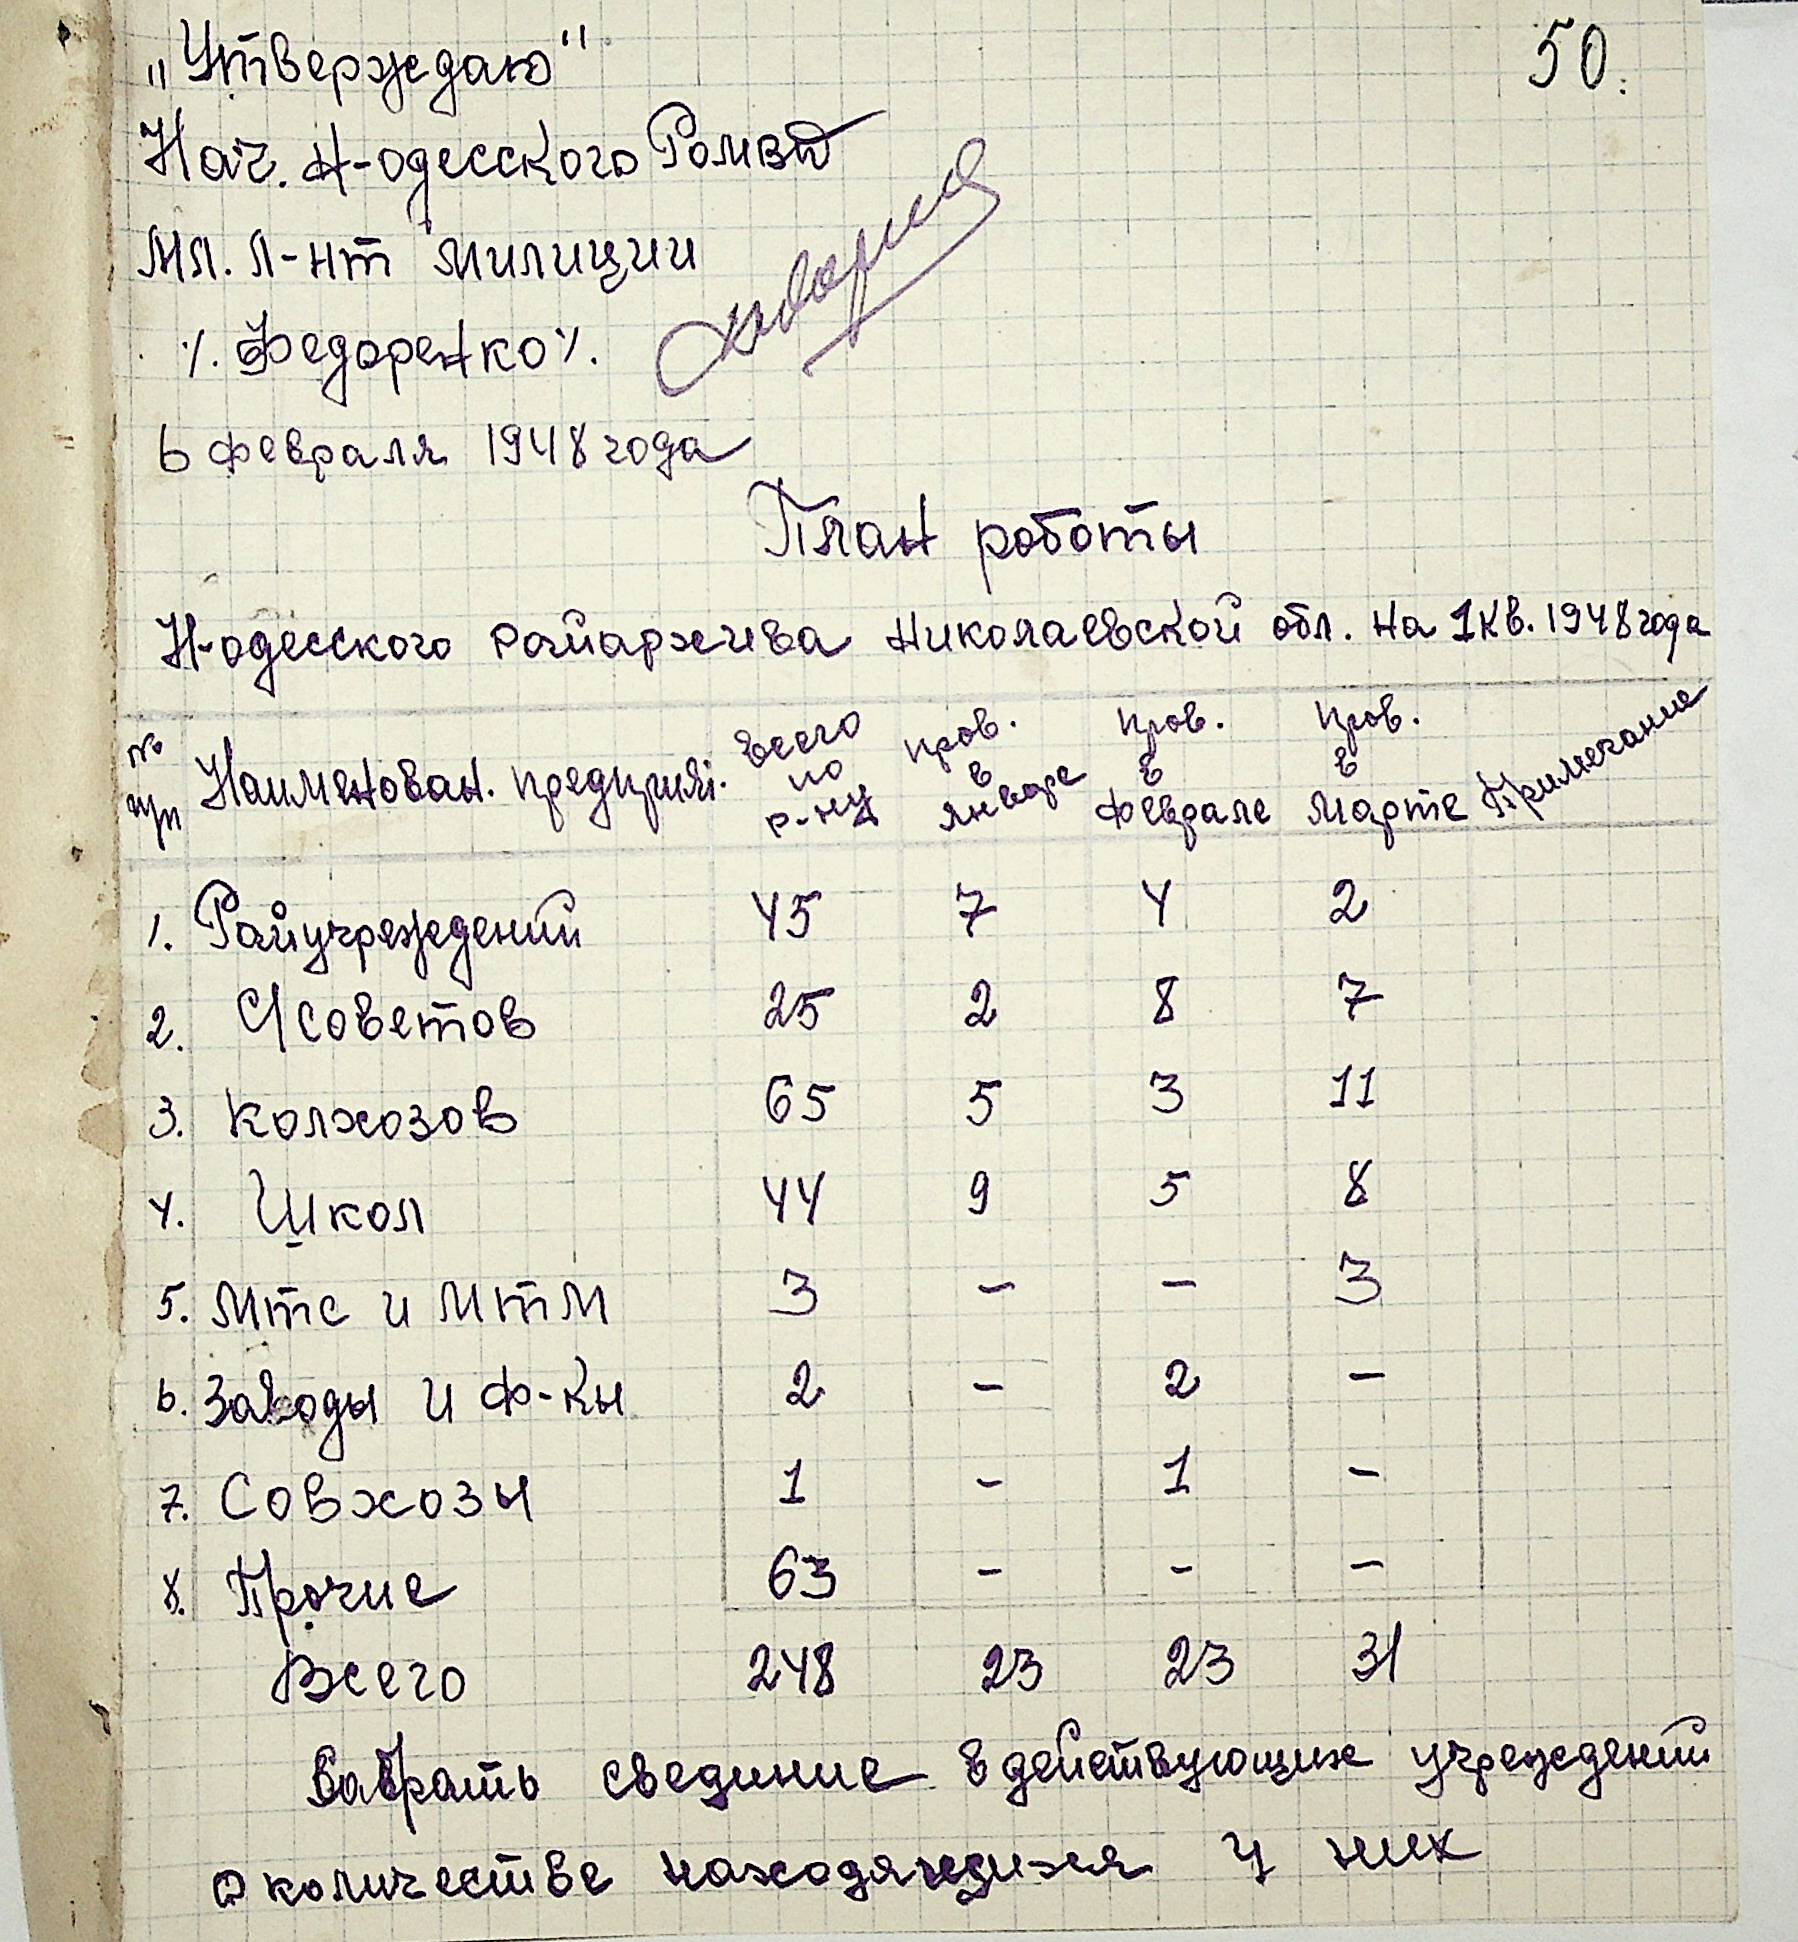 50.
„Утверждаю"
Нач. Н-одесского РОМВД
Мл. Л-нт милиции
/. Федоренко /.
6 февраля 1948 года
План роботы
Н-одесского райархива Николаевской обл. на 1 кв. 1948 года
№ пп Наименован. предприят. Всего по р-ну пров. в январе пров. в феврале пров. в марте Примечание
1. Райучреждений 45 7 4 2
2. С/советов 25 2 8 7
3. Колхозов 65 5 3 11
4. Школ 44 9 5 8
5. Мтс и МТМ 3 - - 3
6. Заводы и ф-ки 2 - 2 -
7. Совхозы 1 - 1 -
8. Прочие 63 - - -
Всего 248 23 23 31
свединие в действующих учреждений
о количестве находящихся у них